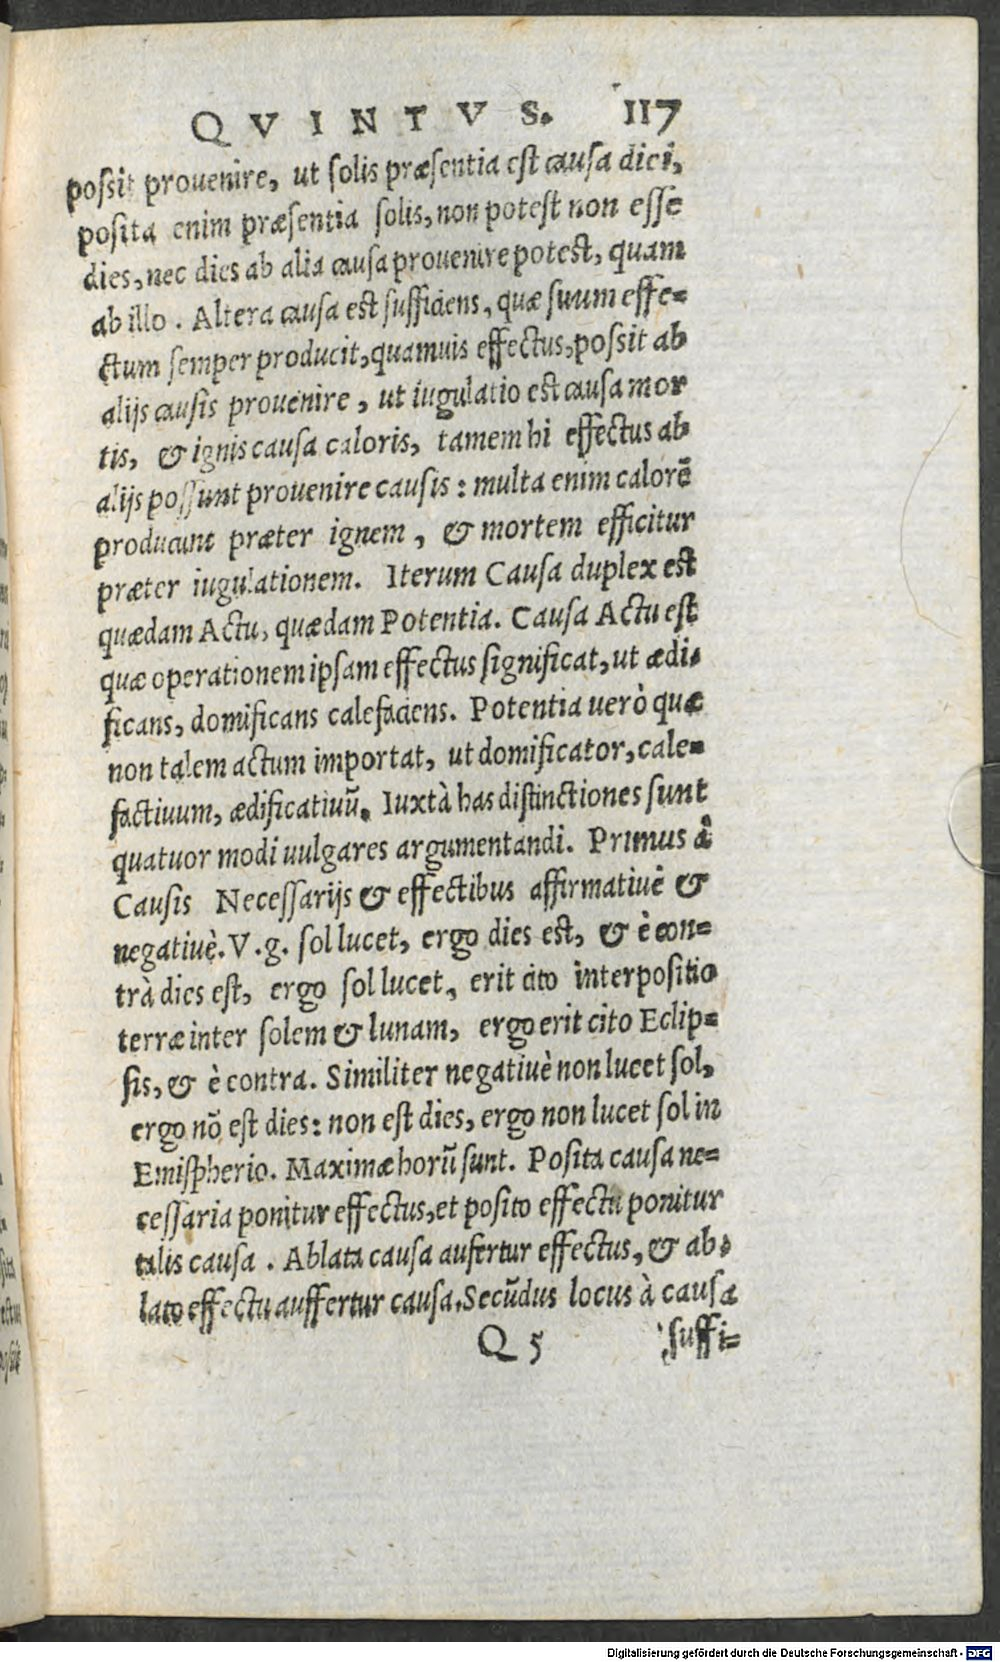 QVINTVS. 117
possit prouenire, ut solis præsentia est causa diei,
posita enim præsentia solis, non potest non esse
dies, nec dies ab alia causa prouenire potest, quam
ab illo. Altera causa est sufficiens, quæ suum effe=
ctum semper producit, quamuis effectus, possit ab
alijs causis prouenire, ut iugulatio est causa mor
tis, & ignis causa caloris, tamem hi effectus ab
alijs possunt prouenire causis: multa enim calorē
producunt præter ignem, & mortem efficitur
præter iugulationem. Iterum Causa duplex est
quædam Actu, quædam Potentia. Causa Actu est
quæ operationem ipsam effectus significat, ut ædi=
ficans, domificans calefaciens. Potentia uerò quæ
non talem actum importat, ut domificator, cale=
factiuum, ædificatiuū. Iuxtà has distinctiones sunt
quatuor modi uulgares argumentandi. Primus à
Causis Necessarijs & effectibus affirmatiuè &
negatiuè. V.g. sol lucet, ergo dies est, & è con=
trà dies est, ergo sol lucet, erit cito interpositio
terræ inter solem & lunam, ergo erit cito Eclip=
sis, & è contra. Similiter negatiuè non lucet sol,
ergo nō est dies: non est dies, ergo non lucet sol in
Emispherio. Maximæ horū sunt. Posita causa ne=
cessaria ponitur effectus, et posito effectu ponitur
talis causa. Ablata causa aufertur effectus, & ab=
lato effectu auffertur causa. Secūdus locus à causa
Q 5 suffi=
Digitalisierung gefördert durch die Deutsche Forschungsgemeinschaft - DFG